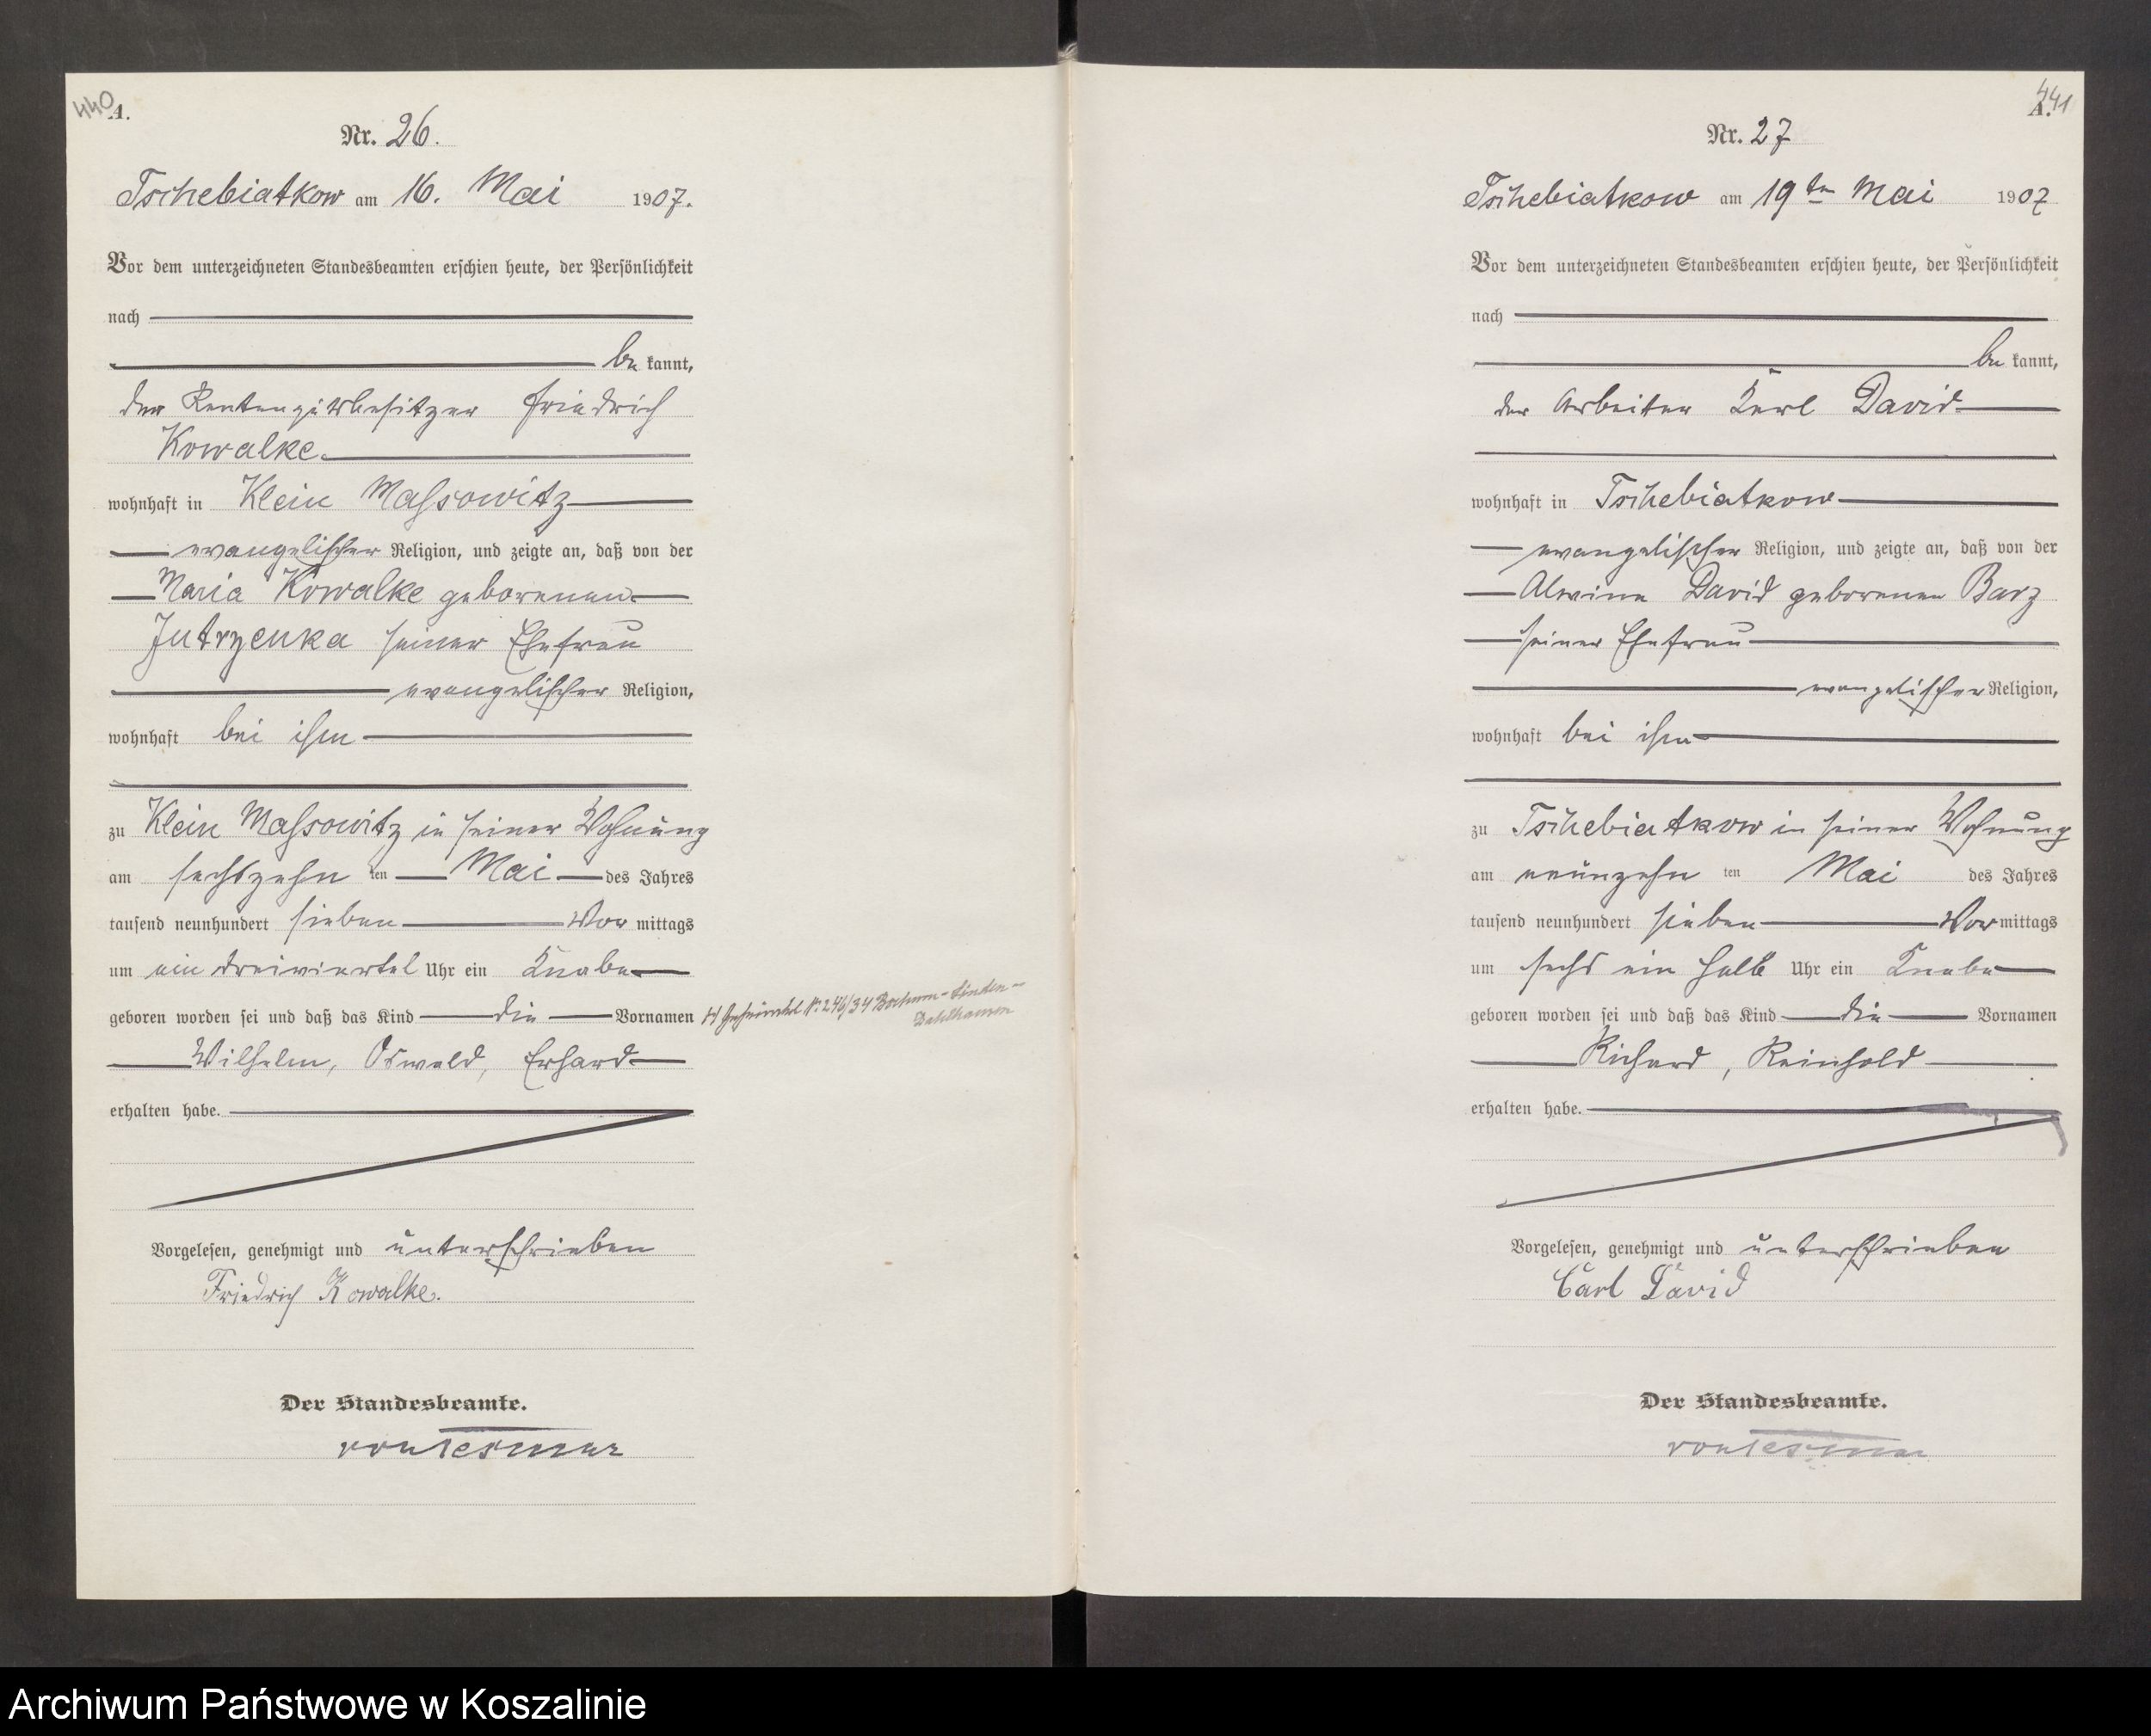 440
A.
Nr. 26.
Tschebiatkow am 16. Mai 1907.
Vor dem unterzeichneten Standesbeamten erschien heute, der Persönlichkeit
nach
be kannt,
der Rentengutsbesitzer Friedrich
Kowalke
wohnhaft in Klein Massowitz
evangelischer Religion, und zeigte an, daß von der
Maria Kowalke geborenen
Jutrzenka seiner Ehefrau
evangelischer Religion,
wohnhaft bei ihm
zu Klein Massowitz in seiner Wohnung
am sechszehn ten Mai des Jahres
tausend neunhundert sieben Vor mittags
um ein dreiviertel Uhr ein Knabe
geboren worden sei und daß das Kind die Vornamen
Wilhelm, Oswald, Erhard
erhalten habe.
Vorgelesen, genehmigt und unterschrieben
Friedrich Kowalke.
Der Standesbeamte.
von Tesmar
Nr. 246/34 Bochum-Linden-
Dahlhausen
441
A.
Nr. 27
Tschebiatkow am 19ten Mai 1907
Vor dem unterzeichneten Standesbeamten erschien heute, der Persönlichkeit
nach
be kannt,
der Arbeiter Karl David
wohnhaft in Tschebiatkow
evangelischer Religion, und zeigte an, daß von der
Alwine David geborenen Barz
seiner Ehefrau
evangelischer Religion,
wohnhaft bei ihm
zu Tschebiatkow in seiner Wohnung
am neunzehn ten Mai des Jahres
tausend neunhundert sieben Vor mittags
um sechs ein halb Uhr ein Knabe
geboren worden sei und daß das Kind die Vornamen
Richard, Reinhold
erhalten habe.
Vorgelesen, genehmigt und unterschrieben
Carl David
Der Standesbeamte.
von Tesmar
Archiwum Państwowe w Koszalinie